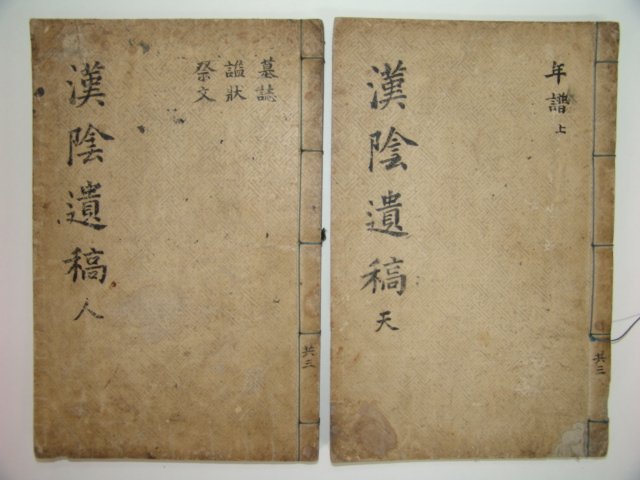 漢陰遺稿 人
墓誌
諡狀
祭文
共三
漢陰遺稿 天
年譜 上
共三